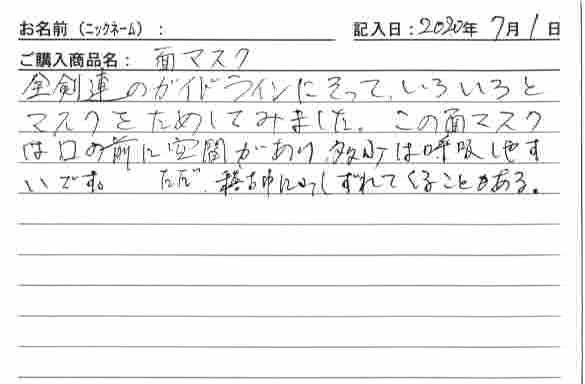 お名前（ニックネーム）： 記入日：2020年 7月 1日
ご購入商品名： 面マスク
全剣連のガイドラインにそって、いろいろと
マスクをためしてみました。この面マスク
は口の前に空間があり、多少は呼吸しやす
いです。 ただ、稽古中に少しずれてくることもある。